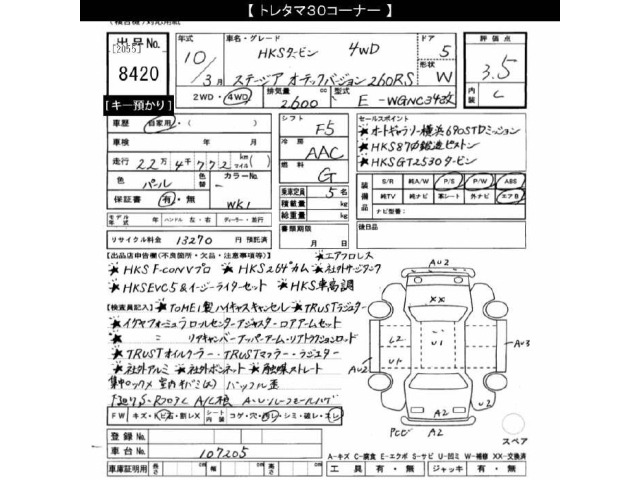 【 トレタマ30コーナー 】
出品No.
[2055]
8420
[キー預かり]
年式
10/3月
車名・グレード
HKSタービン 4WD
ステージア オーテックバージョン260RS
ドア
5
形状
W
評価点
3.5
内装
C
2WD・4WD
排気量
2600 cc
型式
E-WGNC34改
車歴 自家用・( )
車検 年 月
走行 22万4千772 km マイル( )
色 パール
色替
カラーNo. WK1
保証書 有・無
シフト F5
冷房 AAC
燃料 G
乗車定員 5 名
積載量 kg
総重量 kg
セールスポイント
★オートギャラリー横浜690STDミッション
★HKS87φ鍛造ピストン
★HKSGT2530タービン
装備品
S/R 純A/W P/S P/W ABS
純TV 純ナビ 革シート 外ナビ エアB
ナビ型番:
モデル年式 年 ハンドル 左・右 ディーラー・並行
書類期限 月 日
後日品
リサイクル料金 13270 円 預託済
【出品店申告欄(不良箇所・欠品・注意事項等)】
★エアロレス
★HKS F-CONVプロ ★HKS264°カム ★社外サージタンク
★HKSEVC5&イージーライターセット ★HKS車高調
【検査員記入】★TOMEI製ハイキャスキャンセル ★TRUSTラジエター
★イケヤフォーミュラロールセンターアジャスターロアアームセット
★ 〃 リヤキャンバーアッパーアーム・リヤトラクションロッド
★TRUSTオイルクーラー・TRUSTマフラー・ラジエター
★社外アルミ ★社外ボンネット ★触媒ストレート
FW キズ・ヒビ石・斯レX
シート内装 コゲ・穴・汚レ・シミ・破レ・スレ
登録No.
車台No. 107205
車庫証明用 長さ cm 幅 cm 高さ cm
AU2
XX
U2
U1
U1
AU2
AU3
A2
U2
A2
スペア
A-キズ C-腐食 E-エクボ S-サビ U-凹ミ W-補修 XX-交換済
工具 有・無 ジャッキ 有・無